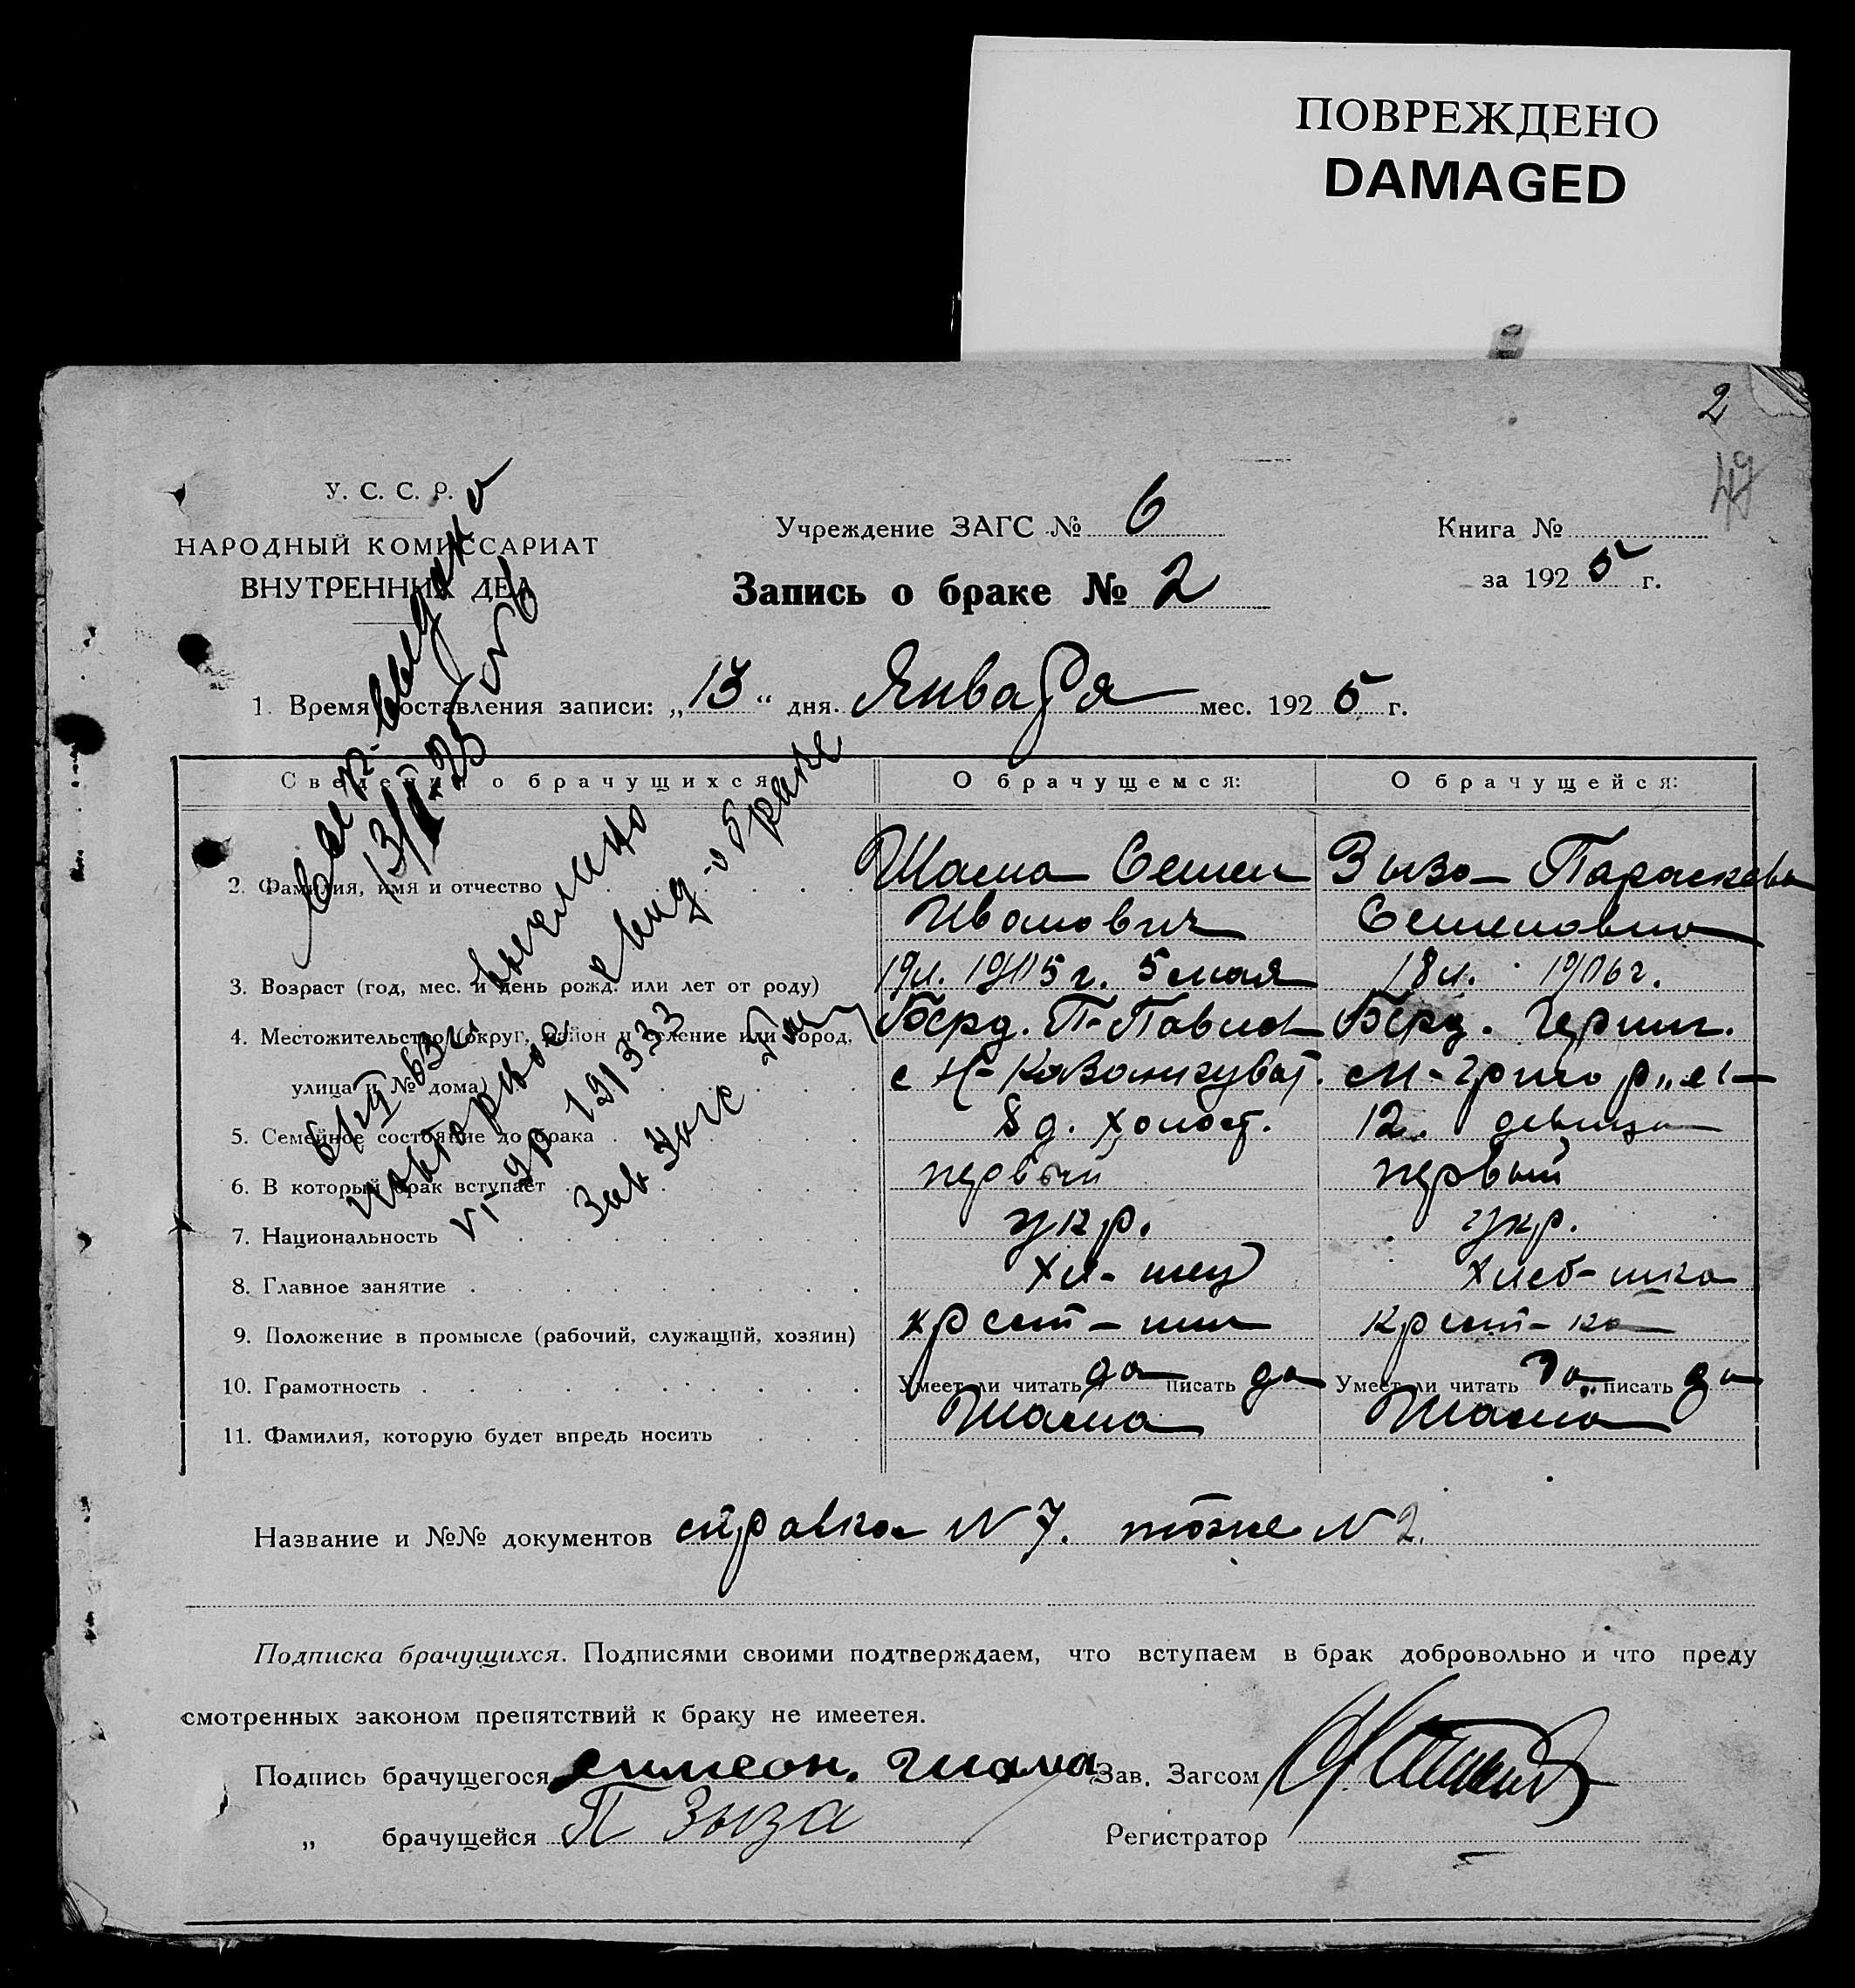 ПОВРЕЖДЕНО
DAMAGED
2
49
У. С. С. Р.
НАРОДНЫЙ КОМИССАРИАТ
ВНУТРЕННИХ ДЕЛ
Учреждение ЗАГС № 6
Книга №
Запись о браке № 2
за 1925 г.
1. Время составления записи: „13“ дня Января мес. 1925 г.
Сведения о брачущихся
О брачущемся:
О брачущейся:
2. Фамилия, имя и отчество
Шама Семен
Иванович
Зыза Параскева
Семеновна
3. Возраст (год, мес. и день рожд. или лет от роду)
19л. 1905г. 5 мая
18л. 1906г.
4. Местожительство (округ, район и селение или город,
улица и № дома)
Берд. П-Павлов
с Н-Казанкуват.
Берд. Черниг.
5. Семейное состояние до брака
8 д. холост.
12. девица
6. В который брак вступает
первый
первый
7. Национальность
укр.
укр.
8. Главное занятие
хл-шец
хлеб-шка
9. Положение в промысле (рабочий, служащий, хозяин)
крест-нин
крест-ка
10. Грамотность
Умеет ли читать да писать да
Умеет ли читать да писать да
11. Фамилия, которую будет впредь носить
Шама
Шама
выд-о браке
19/333
Зав Загс
Название и №№ документов справка N 7. тоже N 2.
Подписка брачущихся. Подписями своими подтверждаем, что вступаем в брак добровольно и что преду
смотренных законом препятствий к браку не имеетея.
Подпись брачущегося симеон. шама Зав. Загсом
„ брачущейся П Зыза Регистратор